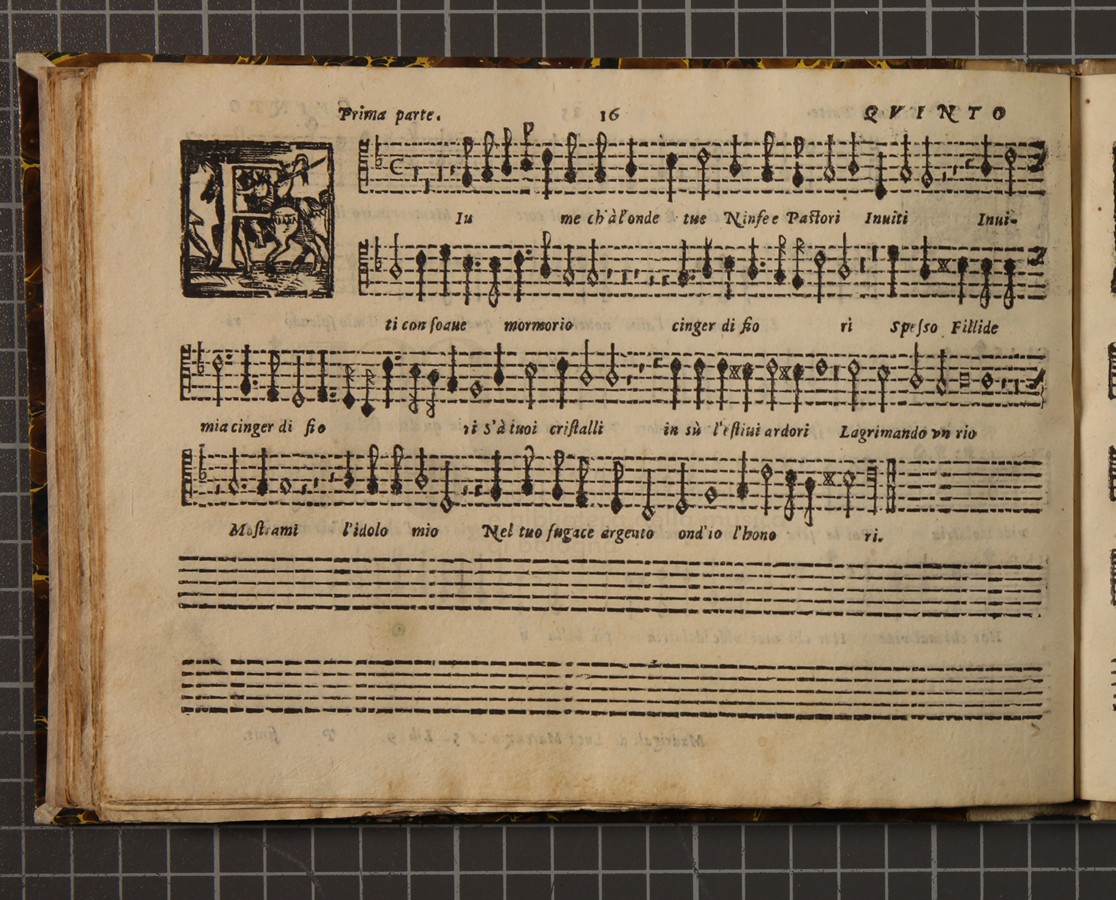 Prima parte. 16 QVINTO
F
Iu me ch'à l'onde tue Ninfe e Pastori Inuiti Inui-
ti con soaue mormorio cinger di fio ri Spesso Fillide
mia cinger di fio ri S'à tuoi cristalli in sù l'estiui ardori Lagrimando vn rio
Mostrami l'idolo mio Nel tuo fugace argento ond'io l'hono ri.